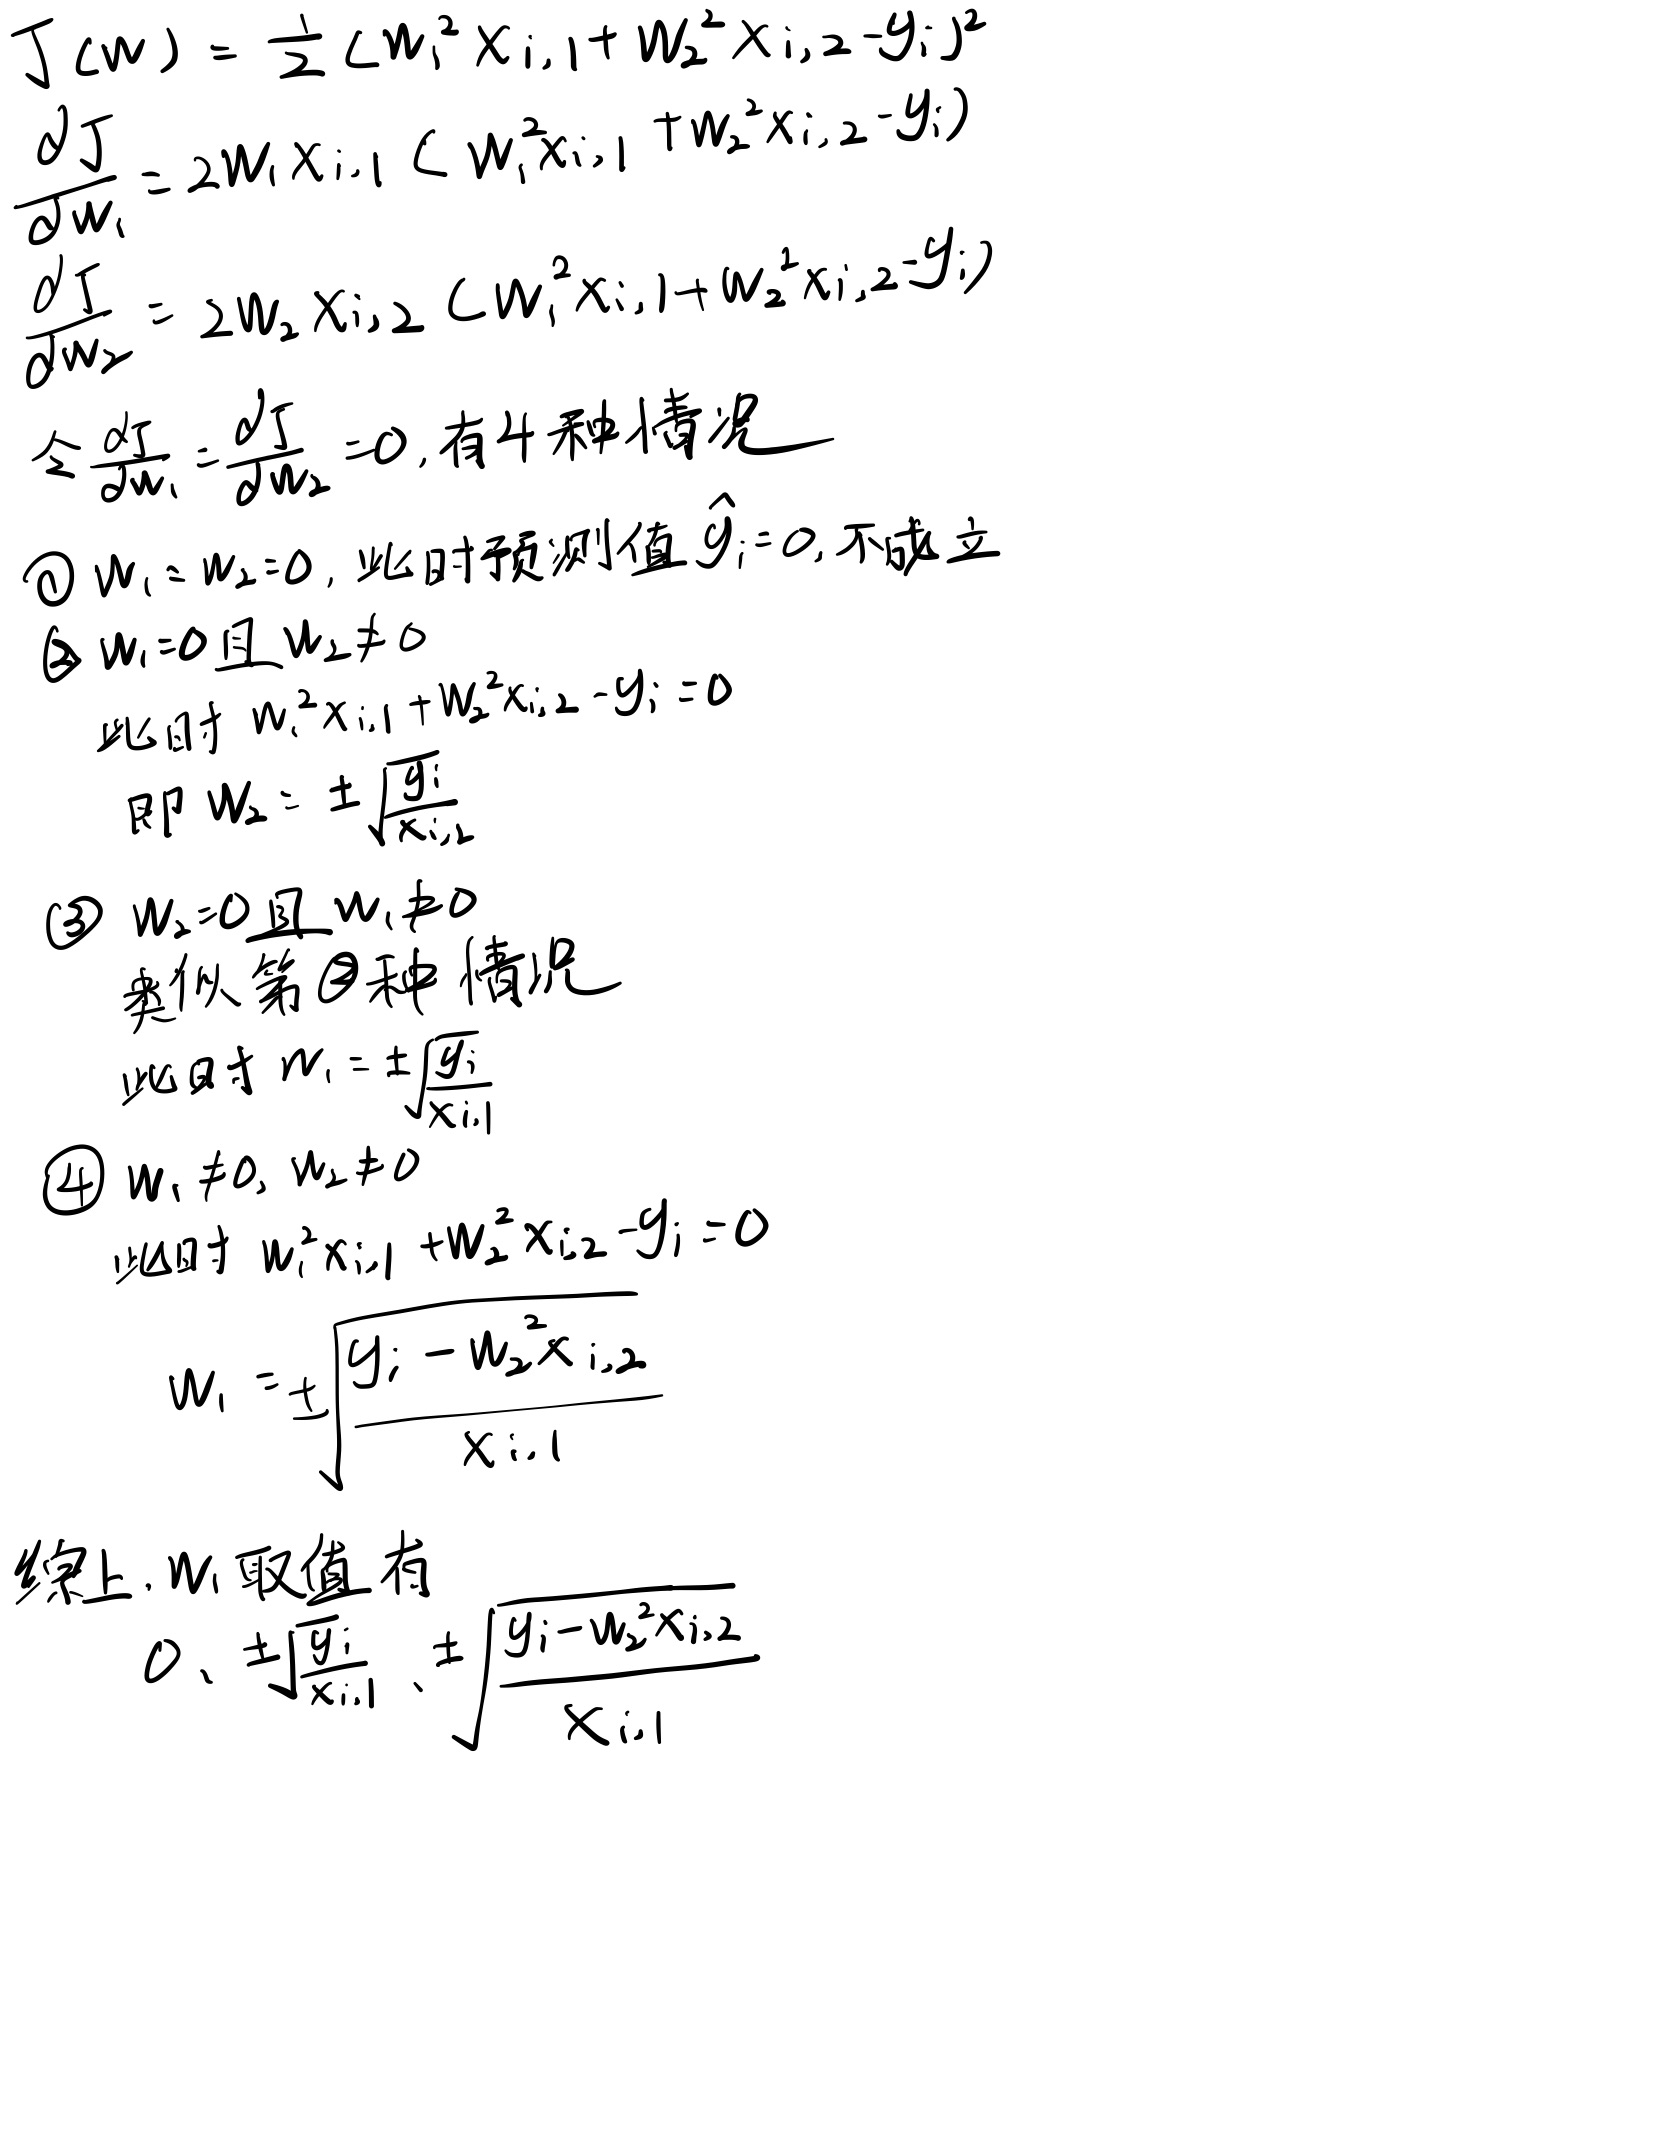 J(w) = 1/2 (w₁² x_{i,1} + w₂² x_{i,2} - y_i)²
dJ/dw₁ = 2w₁ x_{i,1} (w₁² x_{i,1} + w₂² x_{i,2} - y_i)
dJ/dw₂ = 2w₂ x_{i,2} (w₁² x_{i,1} + w₂² x_{i,2} - y_i)
令 dJ/dw₁ = dJ/dw₂ = 0, 有4种情况
① w₁ = w₂ = 0, 此时预测值 ŷ_i = 0, 不成立
② w₁ = 0 且 w₂ ≠ 0
此时 w₁² x_{i,1} + w₂² x_{i,2} - y_i = 0
即 w₂ = ±√(y_i/x_{i,2})
③ w₂ = 0 且 w₁ ≠ 0
类似第②种情况
此时 w₁ = ±√(y_i/x_{i,1})
④ w₁ ≠ 0, w₂ ≠ 0
此时 w₁² x_{i,1} + w₂² x_{i,2} - y_i = 0
w₁ = ±√((y_i - w₂² x_{i,2})/x_{i,1})
综上, w₁ 取值有
0、±√(y_i/x_{i,1})、±√((y_i - w₂² x_{i,2})/x_{i,1})